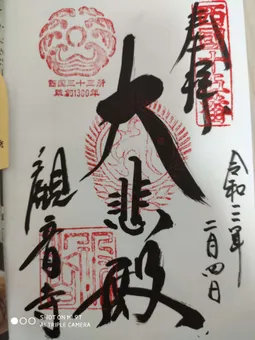 奉拝
西国十五番
大悲殿
令和三年
二月四日
西国三十三所
草創1300年
観音寺
SHOT ON MI 9T
AI TRIPLE CAMERA